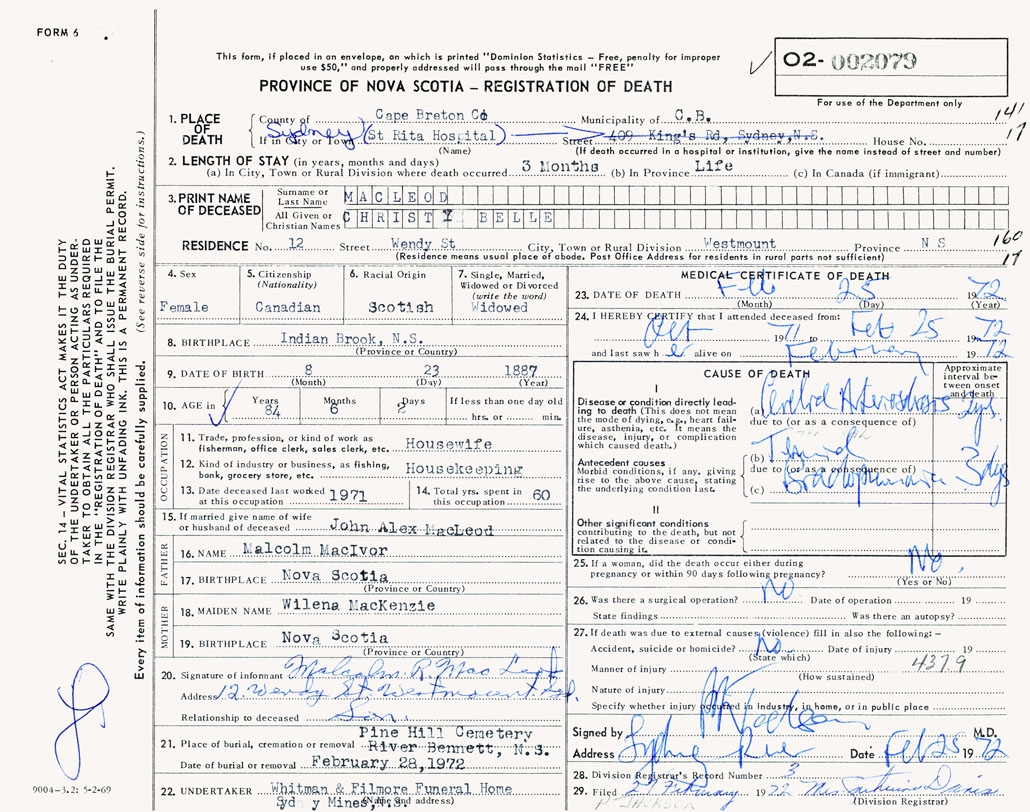 FORM 6
This form, if placed in an envelope, on which is printed "Dominion Statistics - Free, penalty for improper
use $50," and properly addressed will pass through the mail "FREE"
PROVINCE OF NOVA SCOTIA - REGISTRATION OF DEATH
O2- 002079
For use of the Department only
141
17
1. PLACE OF DEATH
County of Cape Breton Co Municipality of C.B.
If in City or Town Sydney (St Rita Hospital) Street 409 King's Rd, Sydney, N.S. House No.
(Name) (If death occurred in a hospital or institution, give the name instead of street and number)
2. LENGTH OF STAY (in years, months and days)
(a) In City, Town or Rural Division where death occurred 3 Months (b) In Province Life (c) In Canada (if immigrant)
3. PRINT NAME OF DECEASED
Surname or Last Name MACLEOD
All Given or Christian Names CHRISTY BELLE
RESIDENCE No. 12 Street Wendy St City, Town or Rural Division Westmount Province N S
(Residence means usual place of abode. Post Office Address for residents in rural parts not sufficient)
160
17
4. Sex
Female
5. Citizenship
(Nationality)
Canadian
6. Racial Origin
Scotish
7. Single, Married,
Widowed or Divorced
(write the word)
Widowed
8. BIRTHPLACE Indian Brook, N.S.
(Province or Country)
9. DATE OF BIRTH 8 23 1887
(Month) (Day) (Year)
10. AGE in Years 84 Months 6 Days 2 If less than one day old
hrs. or min.
OCCUPATION
11. Trade, profession, or kind of work as
fisherman, office clerk, sales clerk, etc. Housewife
12. Kind of industry or business, as fishing,
bank, grocery store, etc. Housekeeping
13. Date deceased last worked
at this occupation 1971
14. Total yrs. spent in
this occupation 60
15. If married give name of wife
or husband of deceased John Alex MacLeod
FATHER
16. NAME Malcolm MacIvor
17. BIRTHPLACE Nova Scotia
(Province or Country)
MOTHER
18. MAIDEN NAME Wilena MacKenzie
19. BIRTHPLACE Nova Scotia
(Province or Country)
20. Signature of informant Malcolm R. MacLeod
Address 12 Wendy St Westmount Syd.
Relationship to deceased Son
21. Place of burial, cremation or removal Pine Hill Cemetery
River Bennett, N.S.
Date of burial or removal February 28, 1972
22. UNDERTAKER Whitman & Filmore Funeral Home
Sydney Mines, N.S.
(Name and address)
MEDICAL CERTIFICATE OF DEATH
23. DATE OF DEATH Feb 25 1972
(Month) (Day) (Year)
24. I HEREBY CERTIFY that I attended deceased from:
Oct 1971 to Feb 25 1972
and last saw her alive on February 1972
CAUSE OF DEATH
Approximate
interval be-
tween onset
and death
I
Disease or condition directly lead-
ing to death (This does not mean
the mode of dying, e.g., heart fail-
ure, asthenia, etc. It means the
disease, injury, or complication
which caused death.)
(a) Cerebral Arteriosclerosis 2 yrs.
due to (or as a consequence of)
Antecedent causes
Morbid conditions, if any, giving
rise to the above cause, stating
the underlying condition last.
(b) Terminal
due to (or as a consequence of)
(c) Bronchopneumonia 3 dys
II
Other significant conditions
contributing to the death, but not
related to the disease or condi-
tion causing it.
25. If a woman, did the death occur either during
pregnancy or within 90 days following pregnancy? No.
(Yes or No)
26. Was there a surgical operation? No Date of operation 19
State findings Was there an autopsy?
27. If death was due to external causes (violence) fill in also the following: -
Accident, suicide or homicide? No. Date of injury 19
(State which)
4379
Manner of injury
(How sustained)
Nature of injury
Specify whether injury occurred in Industry, in home, or in public place
Signed by M.D.
Address Sydney River Date Feb 25 1972
28. Division Registrar's Record Number 3
29. Filed 29 February 1972 Mrs Davis
(Division Registrar)
P-JACKSON
SEC. 14 - VITAL STATISTICS ACT MAKES IT THE DUTY
OF THE UNDERTAKER OR PERSON ACTING AS UNDER-
TAKER TO OBTAIN ALL THE PARTICULARS REQUIRED
IN THE "REGISTRATION OF DEATH" AND TO FILE THE
SAME WITH THE DIVISION REGISTRAR WHO SHALL ISSUE THE BURIAL PERMIT.
WRITE PLAINLY WITH UNFADING INK. THIS IS A PERMANENT RECORD.
Every item of information should be carefully supplied. (See reverse side for instructions.)
9004-3.2: 5-2-69